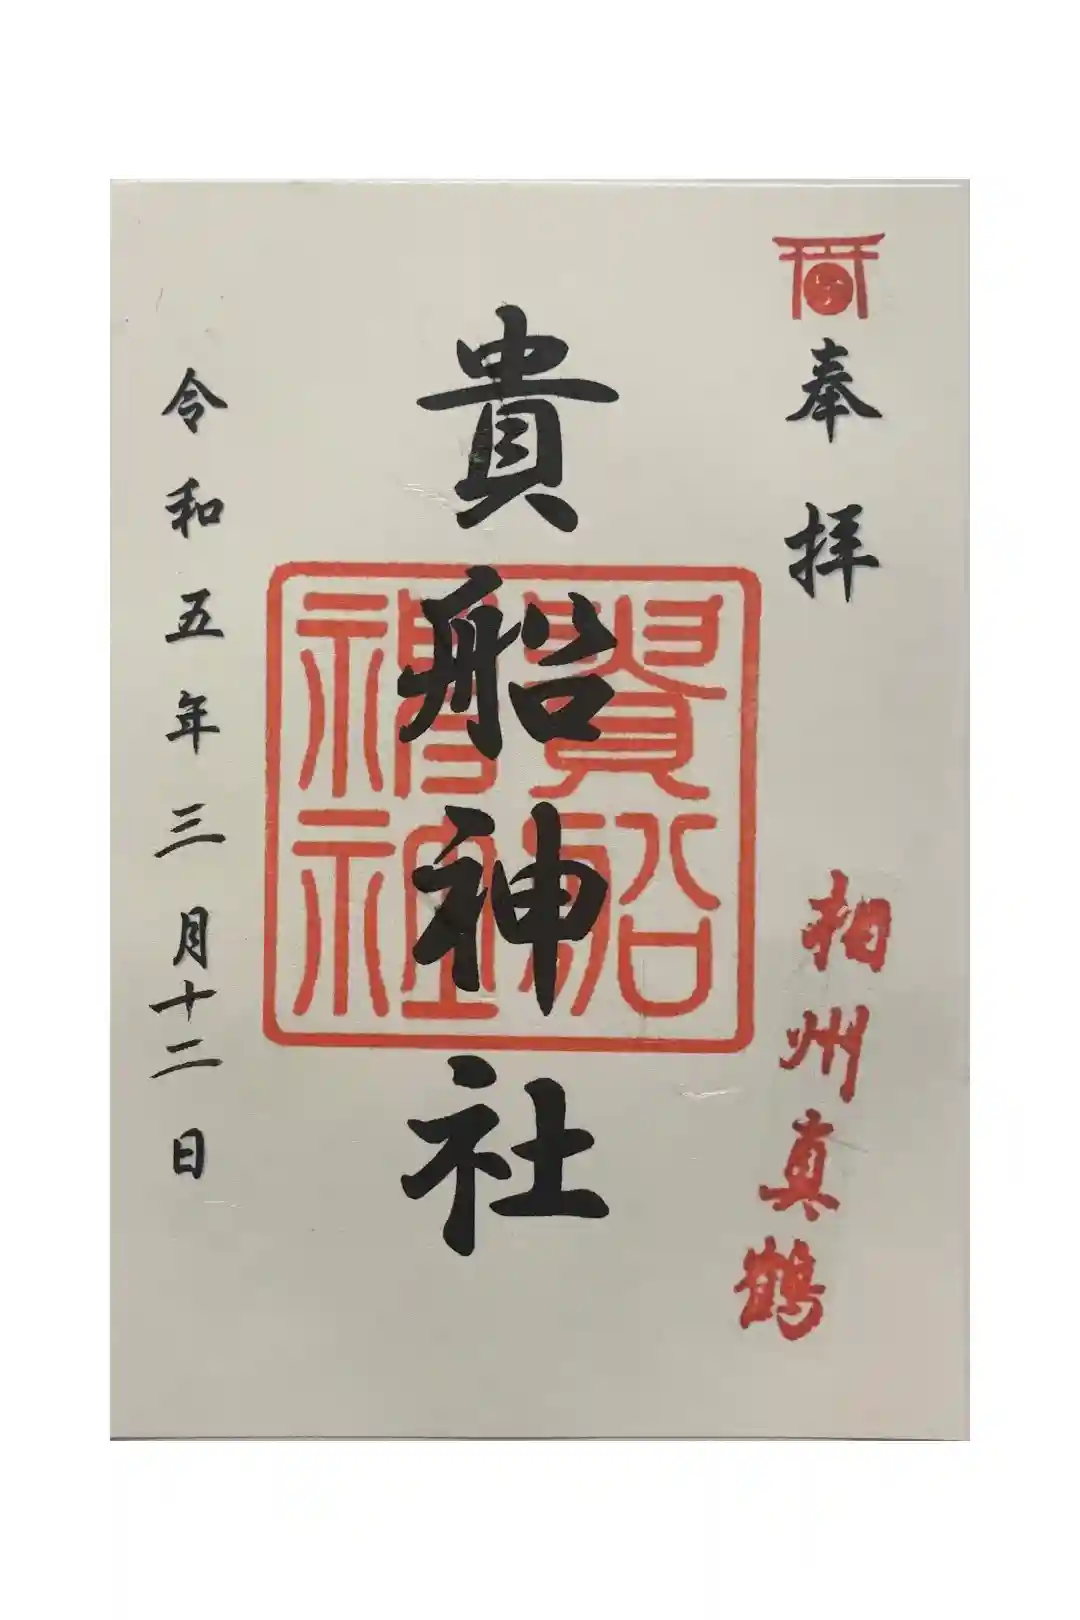 奉拝
相州真鶴
貴船神社
貴船
神社
令和五年三月十二日